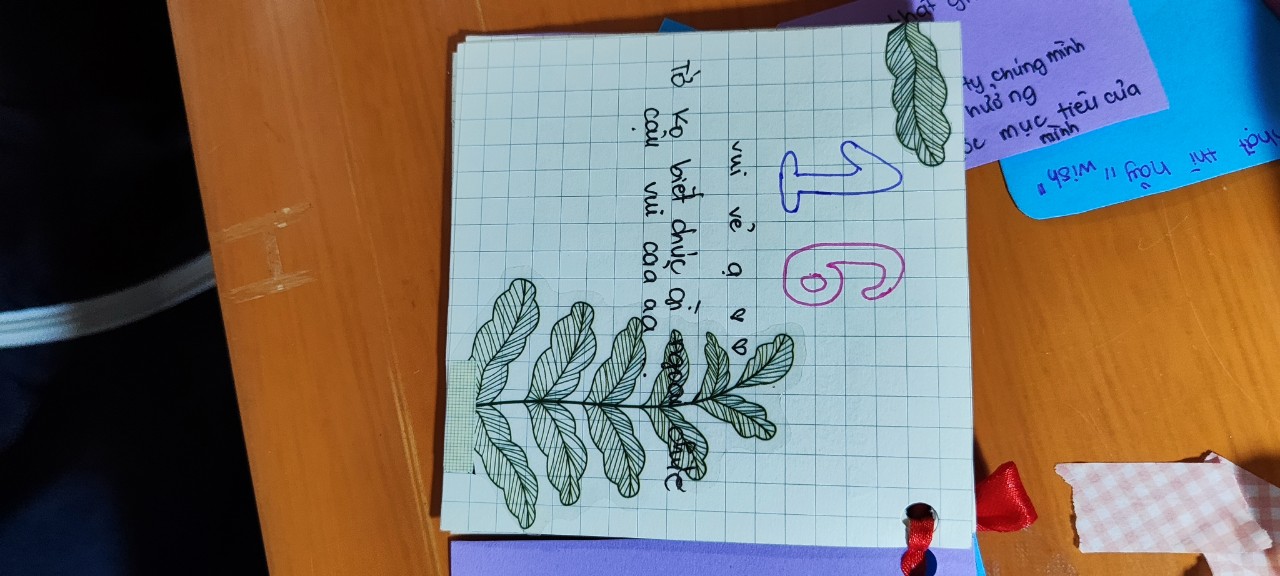 16
vui vẻ ạ
Tớ ko biết chúc gì ngoài chúc
cậu vui caa aa
ty chúng mình
hưởng
mục tiêu của
mình
thi này "wish"